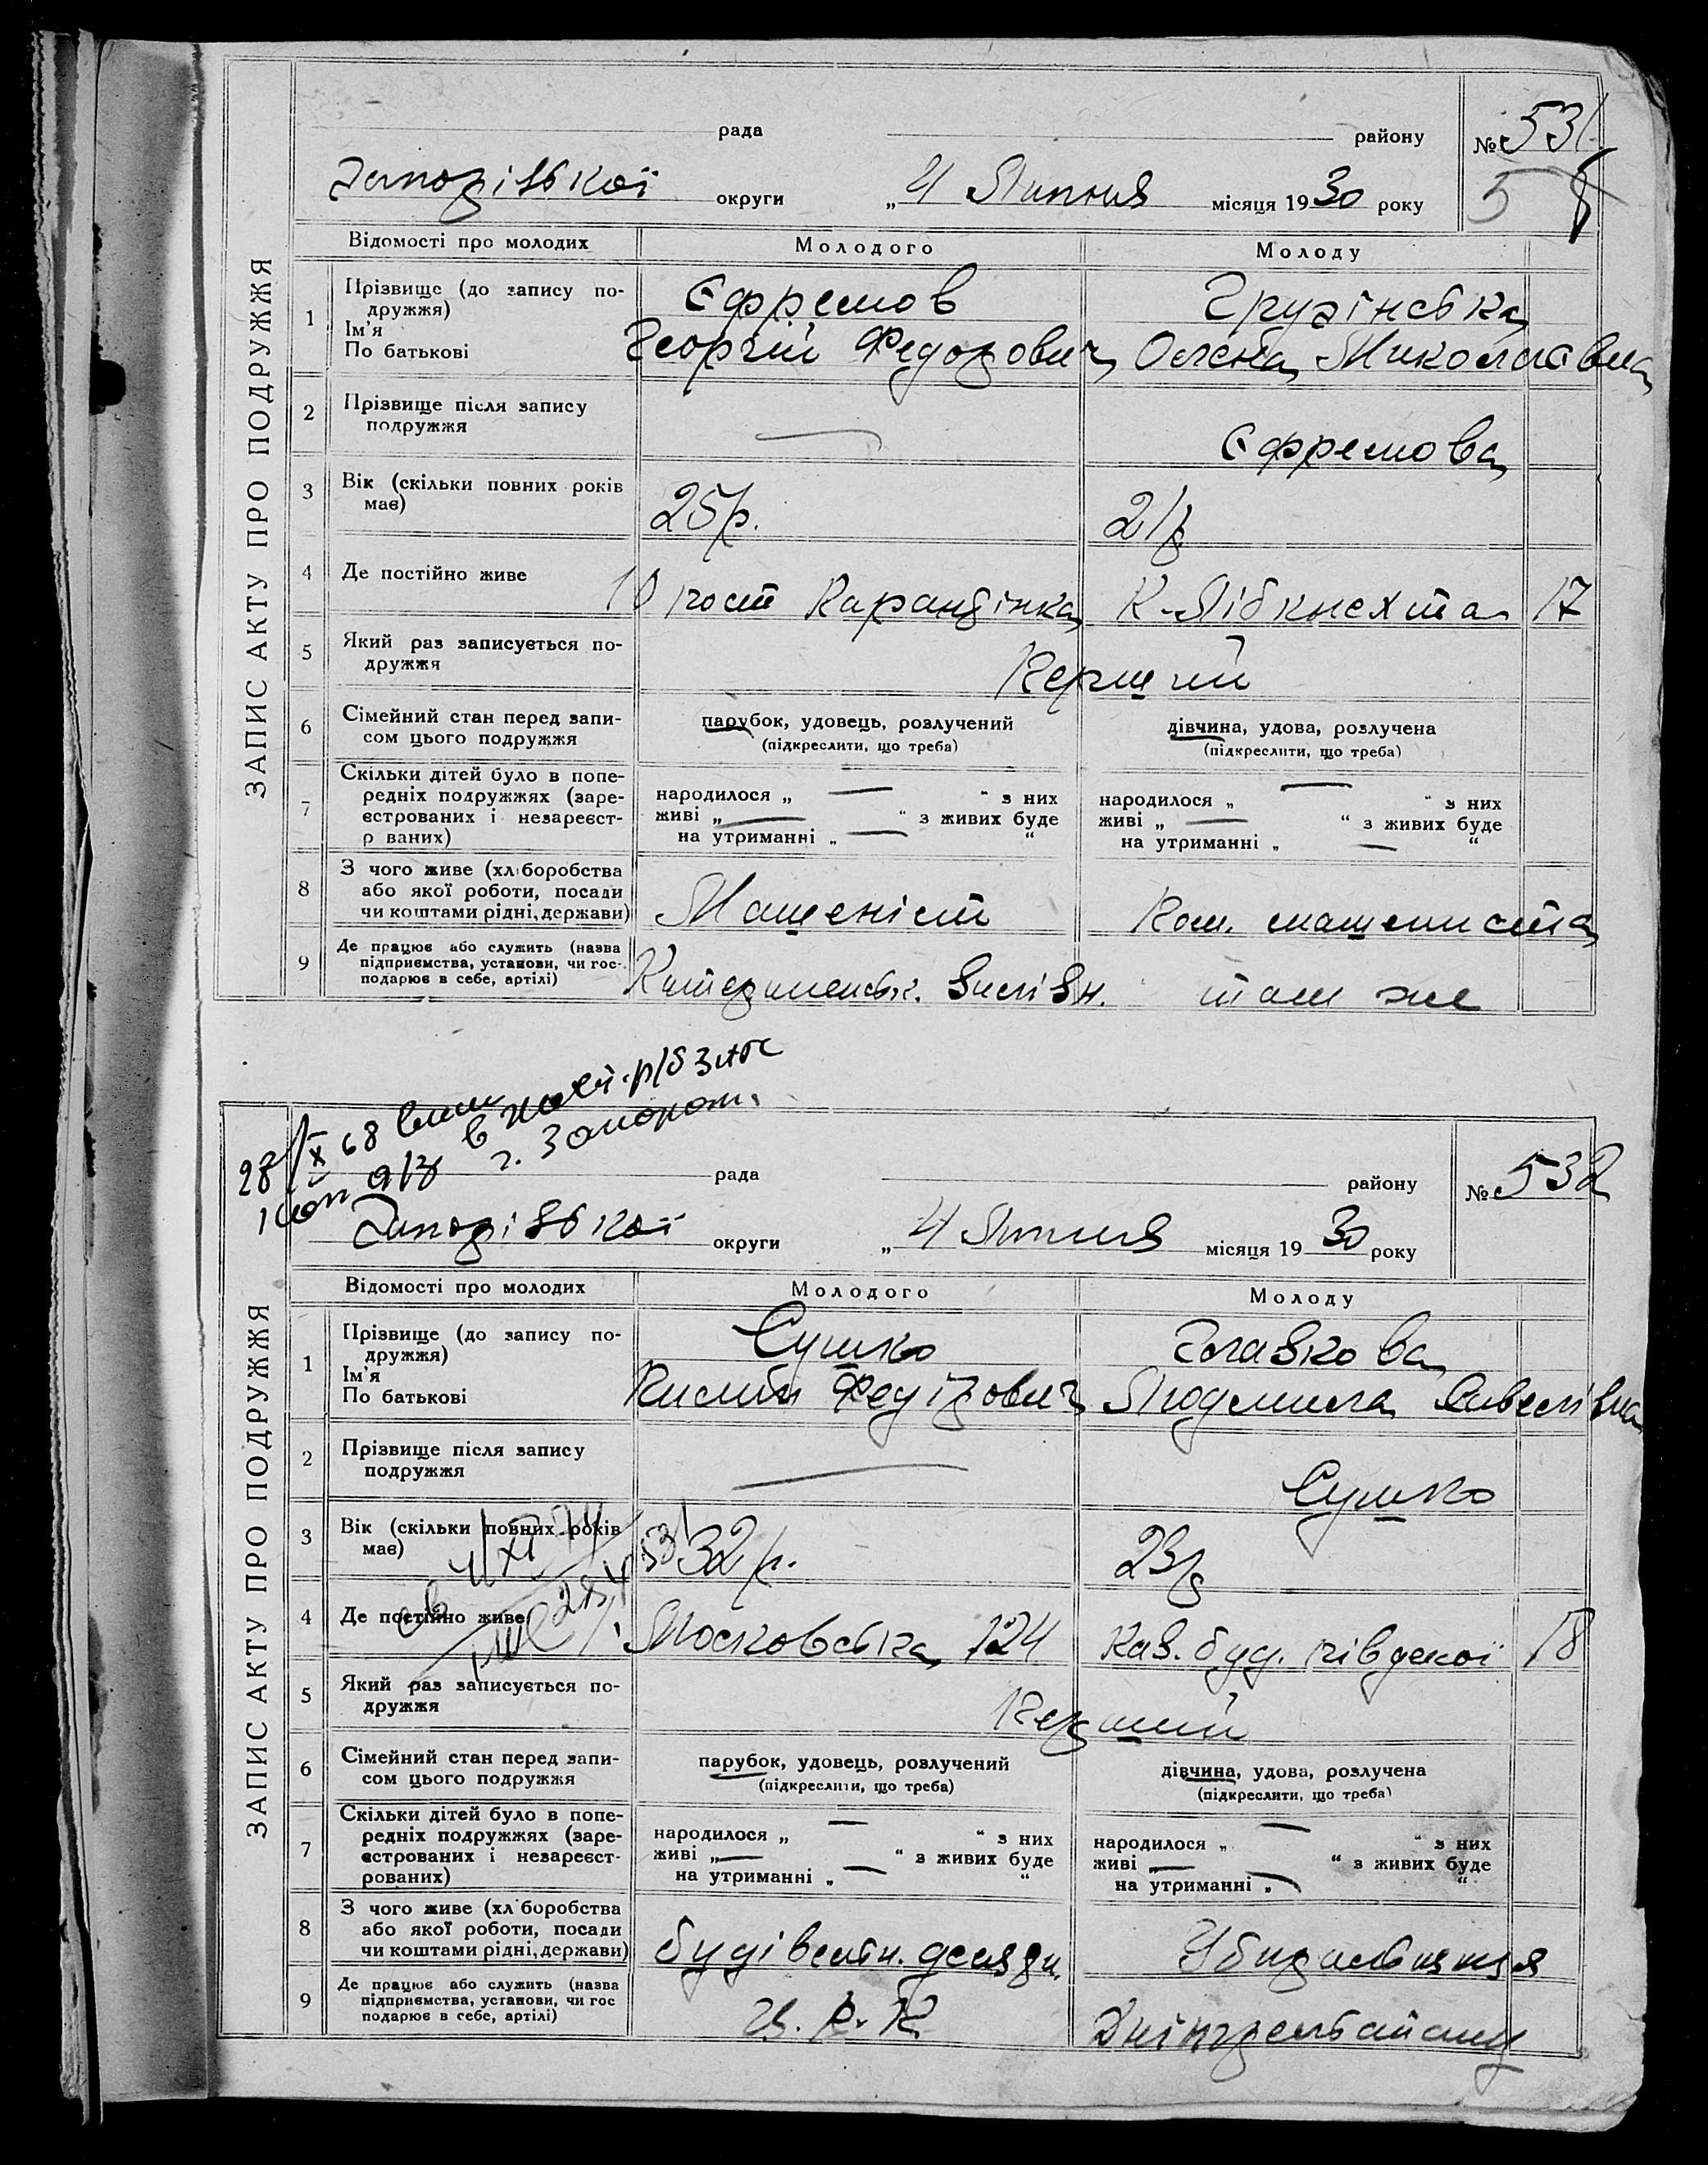 ЗАПИС АКТУ ПРО ПОДРУЖЖЯ
рада району № 531
Запорізької округи „ 4 Липня місяця 1930 року 5
Відомості про молодих Молодого Молоду
1 Прізвище (до запису по-
дружжя)
Ім'я
По батькові
Єфремов Грузінська
Георгій Федорович Олена Миколаєвна
2 Прізвище після запису
подружжя
— Єфремова
3 Вік (скільки повних років
має)
25 р. 21 р
4 Де постійно живе
пост Карантінка К. Лібкнехта 17
5 Який раз записується по-
дружжя
Перший
6 Сімейний стан перед запи-
сом цього подружжя
парубок, удовець, розлучений дівчина, удова, розлучена
(підкреслити, що треба) (підкреслити, що треба)
7 Скільки дітей було в попе-
редніх подружжях (заре-
єстрованих і незареєст-
р ваних)
народилося „ — “ з них народилося „ — “ з них
живі „ — “ з живих буде живі „ — “ з живих буде
на утриманні „ — “ на утриманні „ — “
8 З чого живе (хл боробства
або якої роботи, посади
чи коштами рідні, держави)
Машеніст Кош. машениста
9 Де працює або служить (назва
підприємства, установи, чи гос-
подарює в себе, артілі)
там же
28/X 68
в г. Запорож.
ЗАПИС АКТУ ПРО ПОДРУЖЖЯ
рада району № 532
Запорізької округи „ 4 Липня місяця 1930 року
Відомості про молодих Молодого Молоду
1 Прізвище (до запису по-
дружжя)
Ім'я
По батькові
Сушко Главкова
Федірович Людмила Савелівна
2 Прізвище після запису
подружжя
— Сушко
3 Вік (скільки повних років
має)
32 р. 23 р
4 Де постійно живе
Московська 124 Каз. буд. південої 18
5 Який раз записується по-
дружжя
Перший
6 Сімейний стан перед запи-
сом цього подружжя
парубок, удовець, розлучений дівчина, удова, розлучена
(підкреслити, що треба) (підкреслити, що треба)
7 Скільки дітей було в попе-
редніх подружжях (заре-
єстрованих і незареєст-
рованих)
народилося „ — “ з них народилося „ — “ з них
живі „ — “ з живих буде живі „ — “ з живих буде
на утриманні „ — “ на утриманні „ — “
8 З чого живе (хл боробства
або якої роботи, посади
чи коштами рідні, держави)
будівельн. десятн. Убиральниця
9 Де працює або служить (назва
підприємства, установи, чи гос
подарює в себе, артілі)
Ц. Р. К. Дніпрельстану